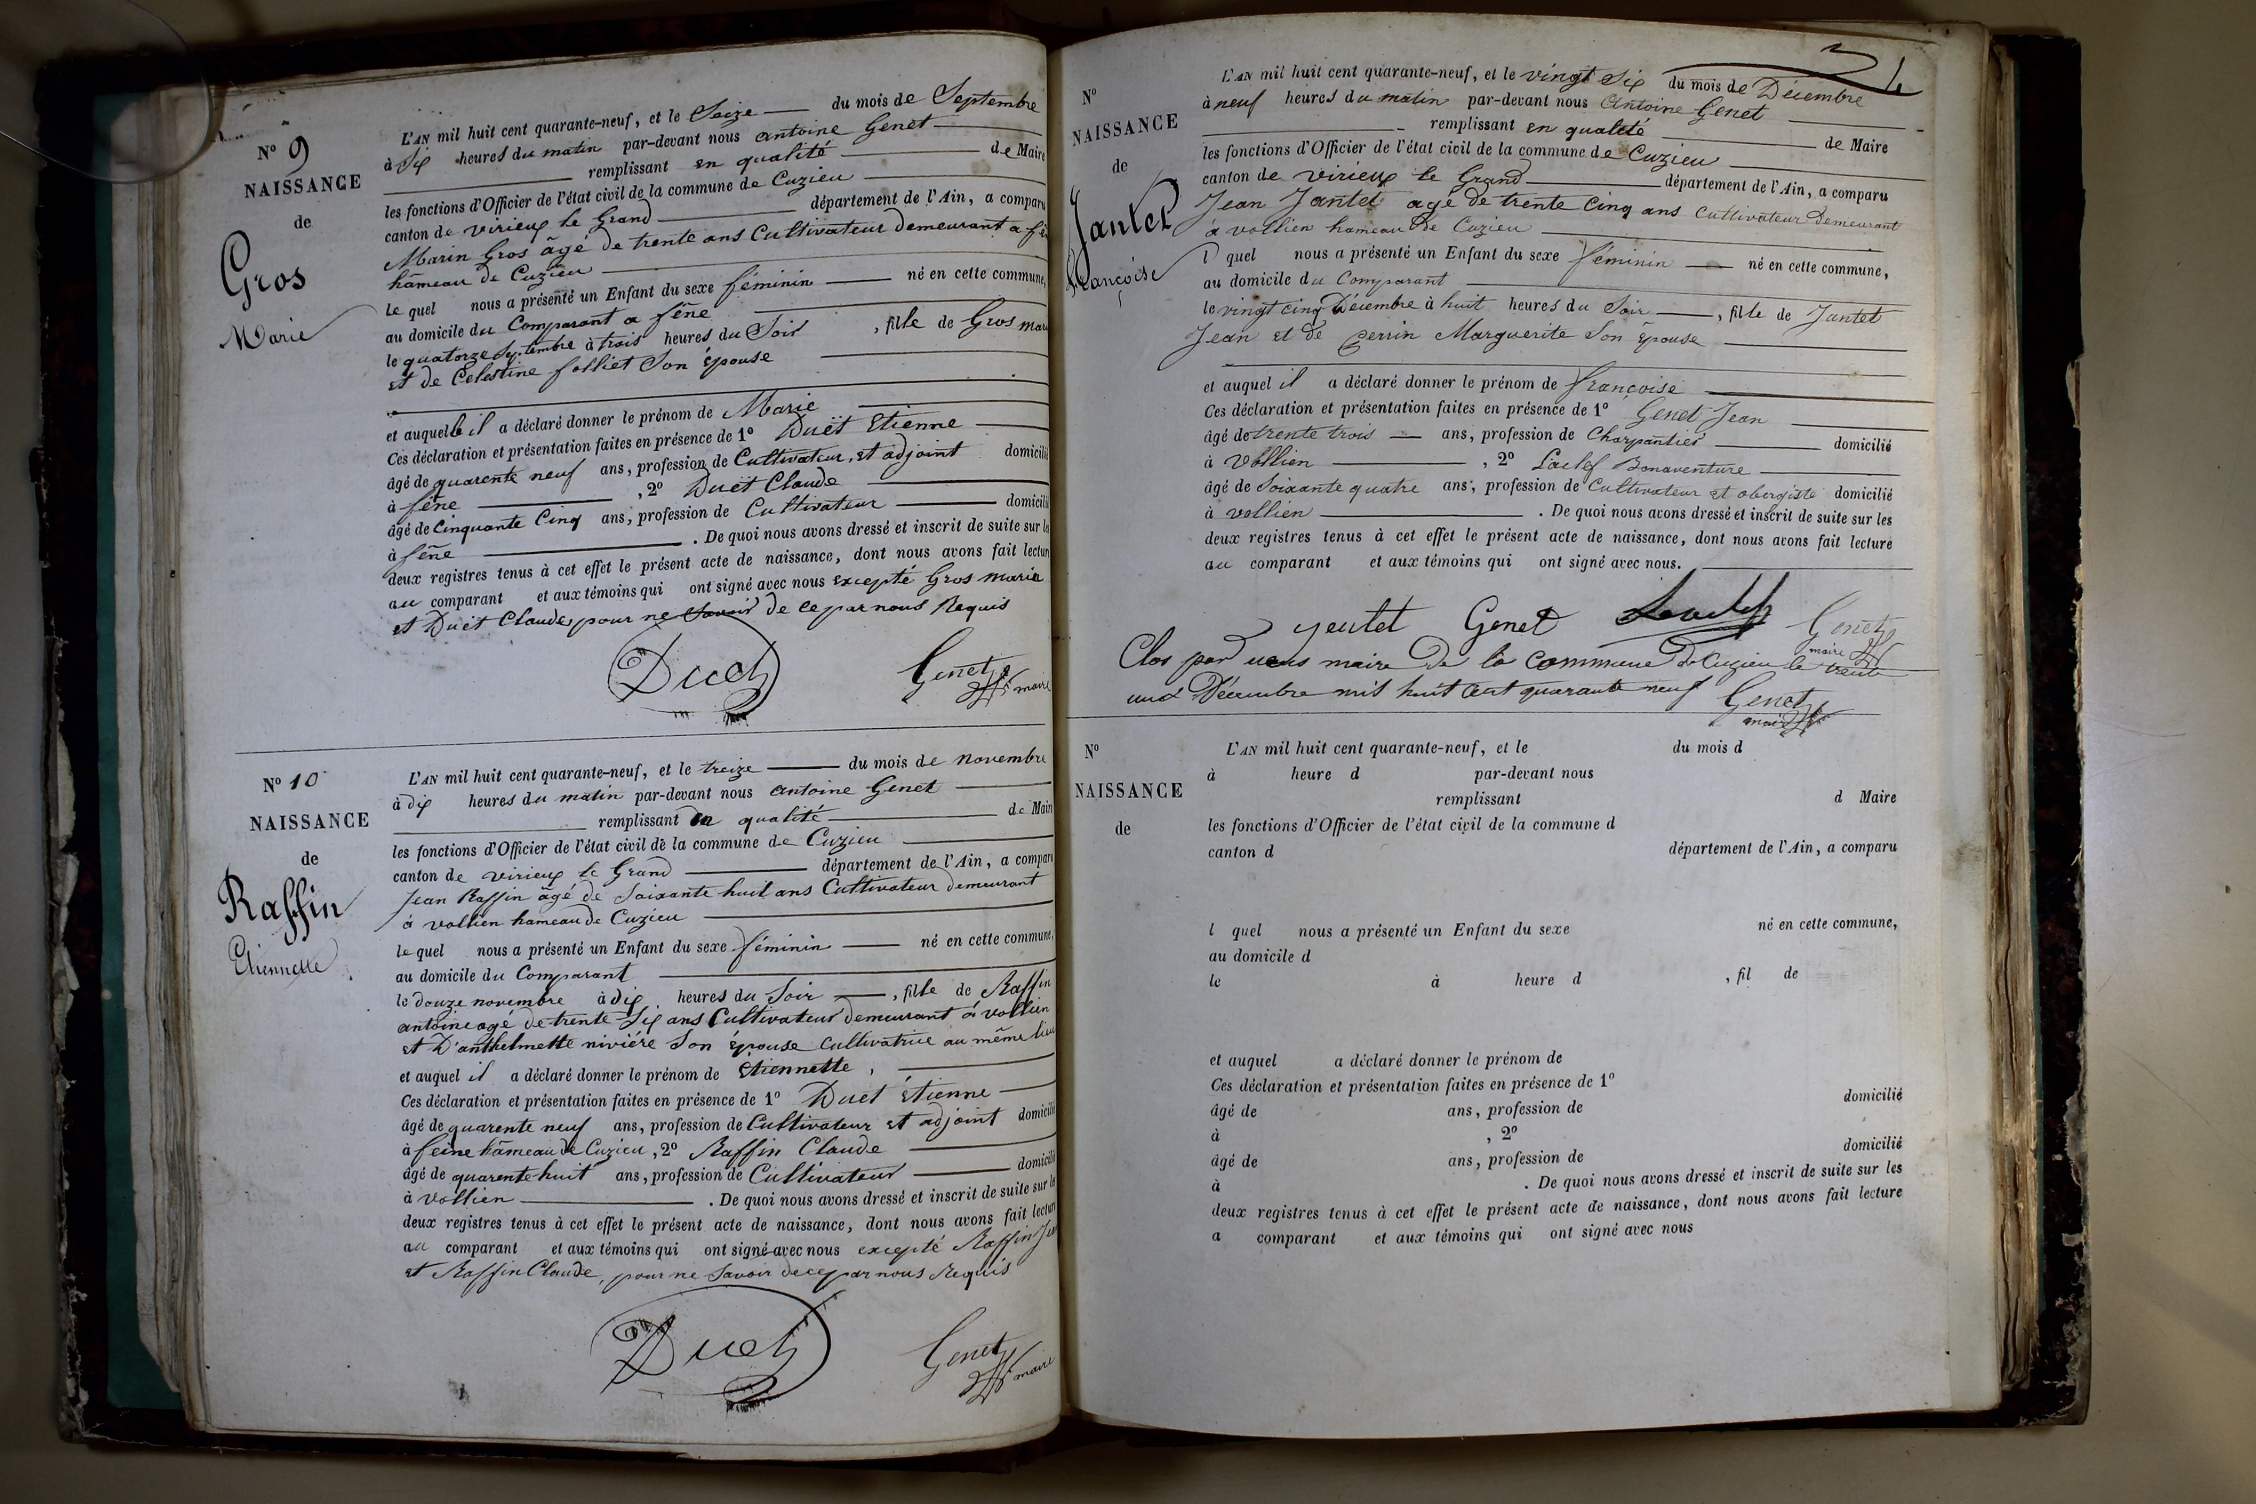 N° 9
NAISSANCE
de
Gros
Marie
L'AN mil huit cent quarante-neuf, et le Seize du mois de Septembre
à dix heures du matin par-devant nous antoine Genet
remplissant en qualité de Maire
les fonctions d'Officier de l'état civil de la commune de Cuzieu
canton de virieux le Grand département de l'Ain, a comparu
Marin Gros âgé de trente ans Cultivateur demeurant a
hameau de Cuzieu
le quel nous a présenté un Enfant du sexe féminin né en cette commune,
au domicile du Comparant a fêne
le quatorze Septembre à trois heures du Soir, fille de Gros
et de Celestine folliet Son épouse
et auquel il a déclaré donner le prénom de Marie
Ces déclaration et présentation faites en présence de 1° Duët Etienne
âgé de quarente neuf ans, profession de Cultivateur, et adjoint domicilié
à fêne, 2° Duët Claude
âgé de Cinquante Cinq ans, profession de Cultivateur domicilié
à fêne. De quoi nous avons dressé et inscrit de suite sur les
deux registres tenus à cet effet le présent acte de naissance, dont nous avons fait lecture
au comparant et aux témoins qui ont signé avec nous excepté Gros marin
et Duët Claude, pour ne Savoir de ce par nous Requis
Duet Genet maire
N° 10
NAISSANCE
de
Raffin
Etiennette
L'AN mil huit cent quarante-neuf, et le treize du mois de novembre
à dix heures du matin par-devant nous antoine Genet
remplissant en qualité de Maire
les fonctions d'Officier de l'état civil de la commune de Cuzieu
canton de virieux le Grand département de l'Ain, a comparu
Jean Raffin âgé de Soixante huit ans Cultivateur demeurant
à vollien hameau de Cuzieu
le quel nous a présenté un Enfant du sexe féminin né en cette commune,
au domicile du Comparant
le douze novembre à dix heures du Soir, fille de Raffin
antoine agé de trente Six ans Cultivateur demeurant à vollien
et D'anthelmette nivière Son épouse Cultivatrice au même lieu
et auquel il a déclaré donner le prénom de Etiennette,
Ces déclaration et présentation faites en présence de 1° Duet Étienne
âgé de quarente neuf ans, profession de Cultivateur et adjoint domicilié
à feine hâmeau de Cuzieu, 2° Raffin Claude
âgé de quarente huit ans, profession de Cultivateur domicilié
à vollien. De quoi nous avons dressé et inscrit de suite sur les
deux registres tenus à cet effet le présent acte de naissance, dont nous avons fait lecture
au comparant et aux témoins qui ont signé avec nous excepté Raffin Jean
et Raffin Claude, pour ne Savoir de ce par nous Requis
Duet Genet maire
N°
NAISSANCE
de
Jantet
Françoise
L'AN mil huit cent quarante-neuf, et le vingt Six du mois de Décembre
à neuf heures du matin par-devant nous Antoine Genet
remplissant en qualité de Maire
les fonctions d'Officier de l'état civil de la commune de Cuzieu
canton de virieux le Grand département de l'Ain, a comparu
Jean Jantet agé de trente Cinq ans Cultivateur Demeurant
à vollien hameau de Cuzieu
l quel nous a présenté un Enfant du sexe féminin né en cette commune,
au domicile du Comparant
le vingt cinq Décembre à huit heures du Soir, fille de Jantet
Jean et de perrin Marguerite Son Epouse
et auquel il a déclaré donner le prénom de françoise
Ces déclaration et présentation faites en présence de 1° Genet Jean
âgé de trente trois ans, profession de Charpantier domicilié
à Vollien, 2° Bonaventure
âgé de Soixante quatre ans, profession de Cultivateur et obergiste domicilié
à vollien. De quoi nous avons dressé et inscrit de suite sur les
deux registres tenus à cet effet le présent acte de naissance, dont nous avons fait lecture
au comparant et aux témoins qui ont signé avec nous.
Genet Genet maire
Clos par nous maire de la Commune de Cuzieu le trente
une Décembre mil huit Cent quarante neuf Genet
maire
N°
NAISSANCE
de
L'AN mil huit cent quarante-neuf, et le du mois d
à heure d par-devant nous
remplissant d Maire
les fonctions d'Officier de l'état civil de la commune d
canton d département de l'Ain, a comparu
l quel nous a présenté un Enfant du sexe né en cette commune,
au domicile d
le à heure d, fil de
et auquel a déclaré donner le prénom de
Ces déclaration et présentation faites en présence de 1°
âgé de ans, profession de domicilié
à, 2°
âgé de ans, profession de domicilié
à. De quoi nous avons dressé et inscrit de suite sur les
deux registres tenus à cet effet le présent acte de naissance, dont nous avons fait lecture
a comparant et aux témoins qui ont signé avec nous